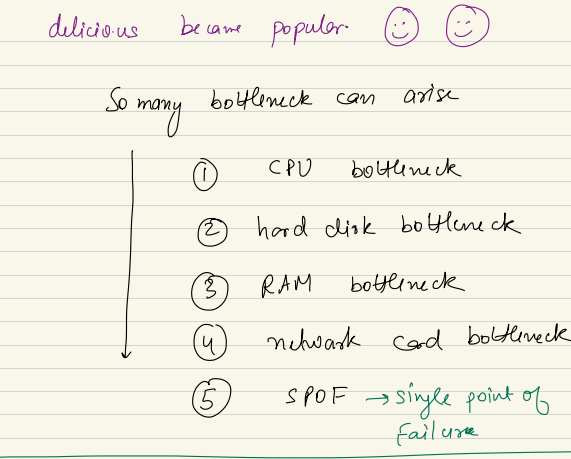 delicious became popular.
So many bottleneck can arise
1 CPU bottleneck
2 hard disk bottleneck
3 RAM bottleneck
4 network card bottleneck
5 SPOF → single point of
Failure